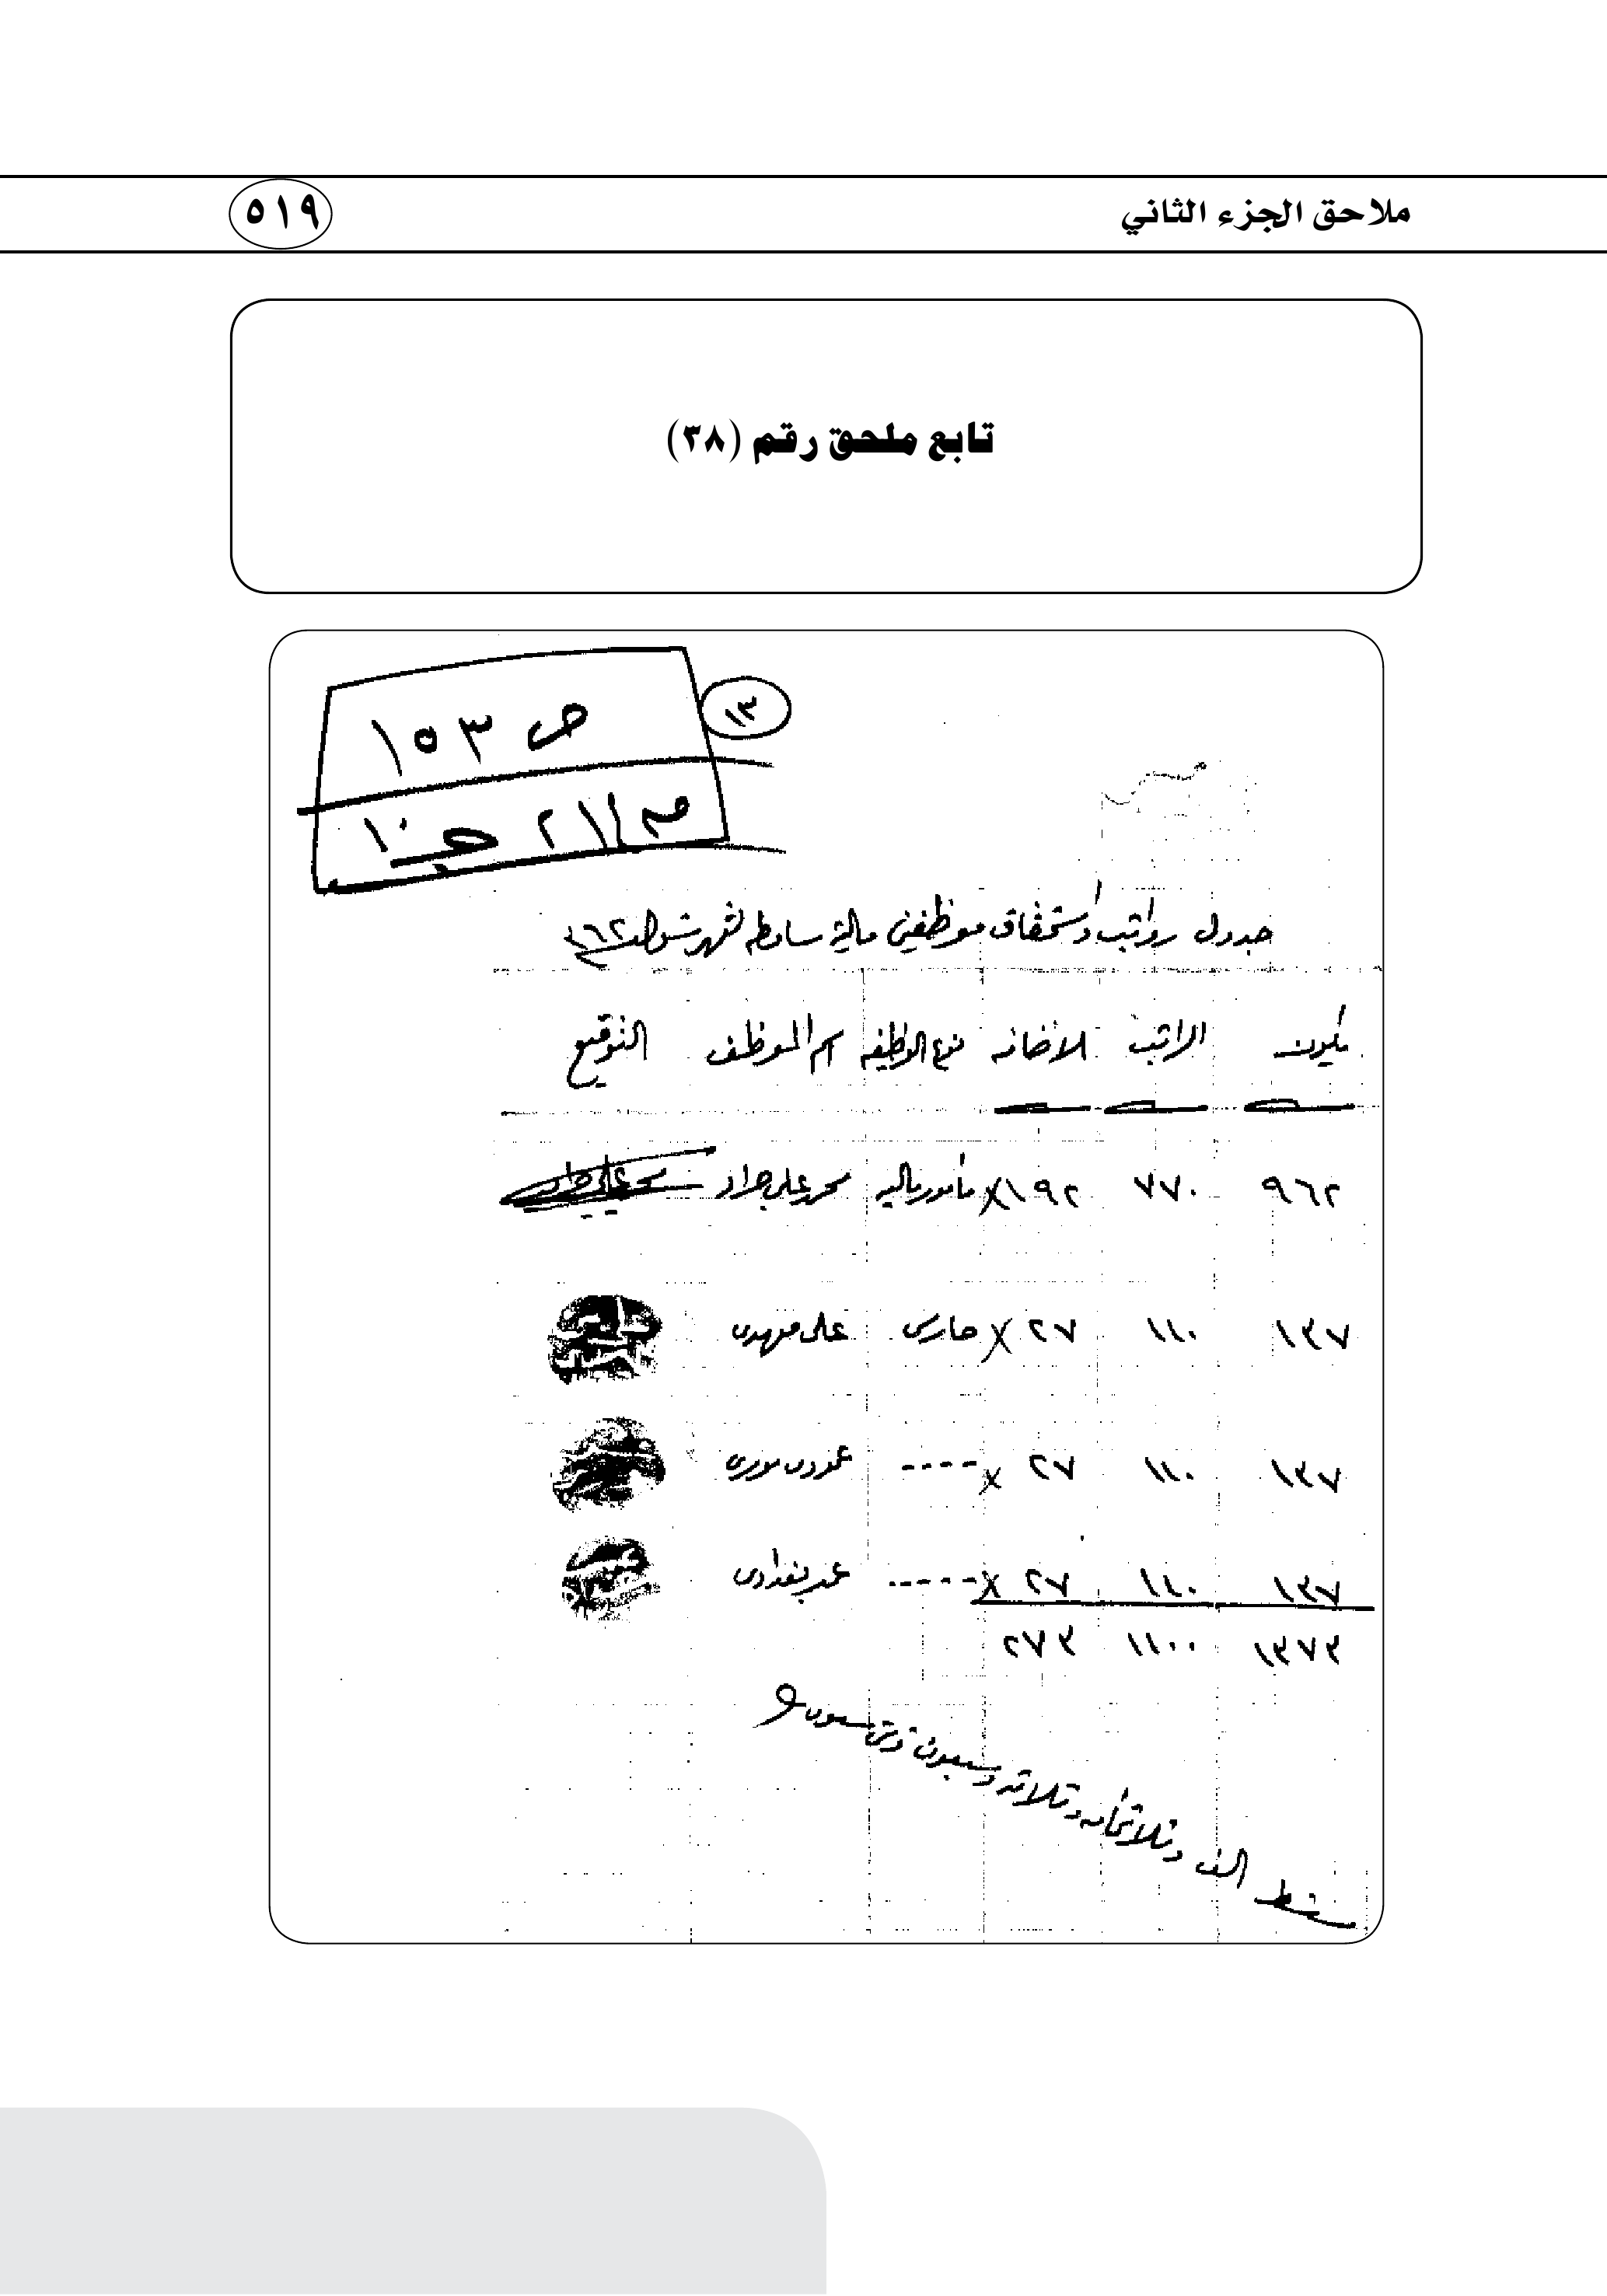 ملاحق الجزء الثاني ٥١٩
تابع ملحق رقم (٣٨)
١٣
ص ١٥٣
جدول رواتب وأستحقاق موظفين مالية سامطه لشهر شوال ٣٦٢
يكون الراتب الاضافه نوع الوظيفه اسم الموظف التوقيع
٩٦٢ ٧٧٠ ١٩٢ مأمور ماليه محمد علي جراد
١٣٧ ١١٠ ٢٧ حارس علي مهدي
١٣٧ ١١٠ ٢٧ ----
١٣٧ ١١٠ ٢٧ ----- بغدادي
١٣٧٣ ١١٠٠ ٢٧٣
فقط الف وثلاثمائه وثلاثه وسبعون قرش